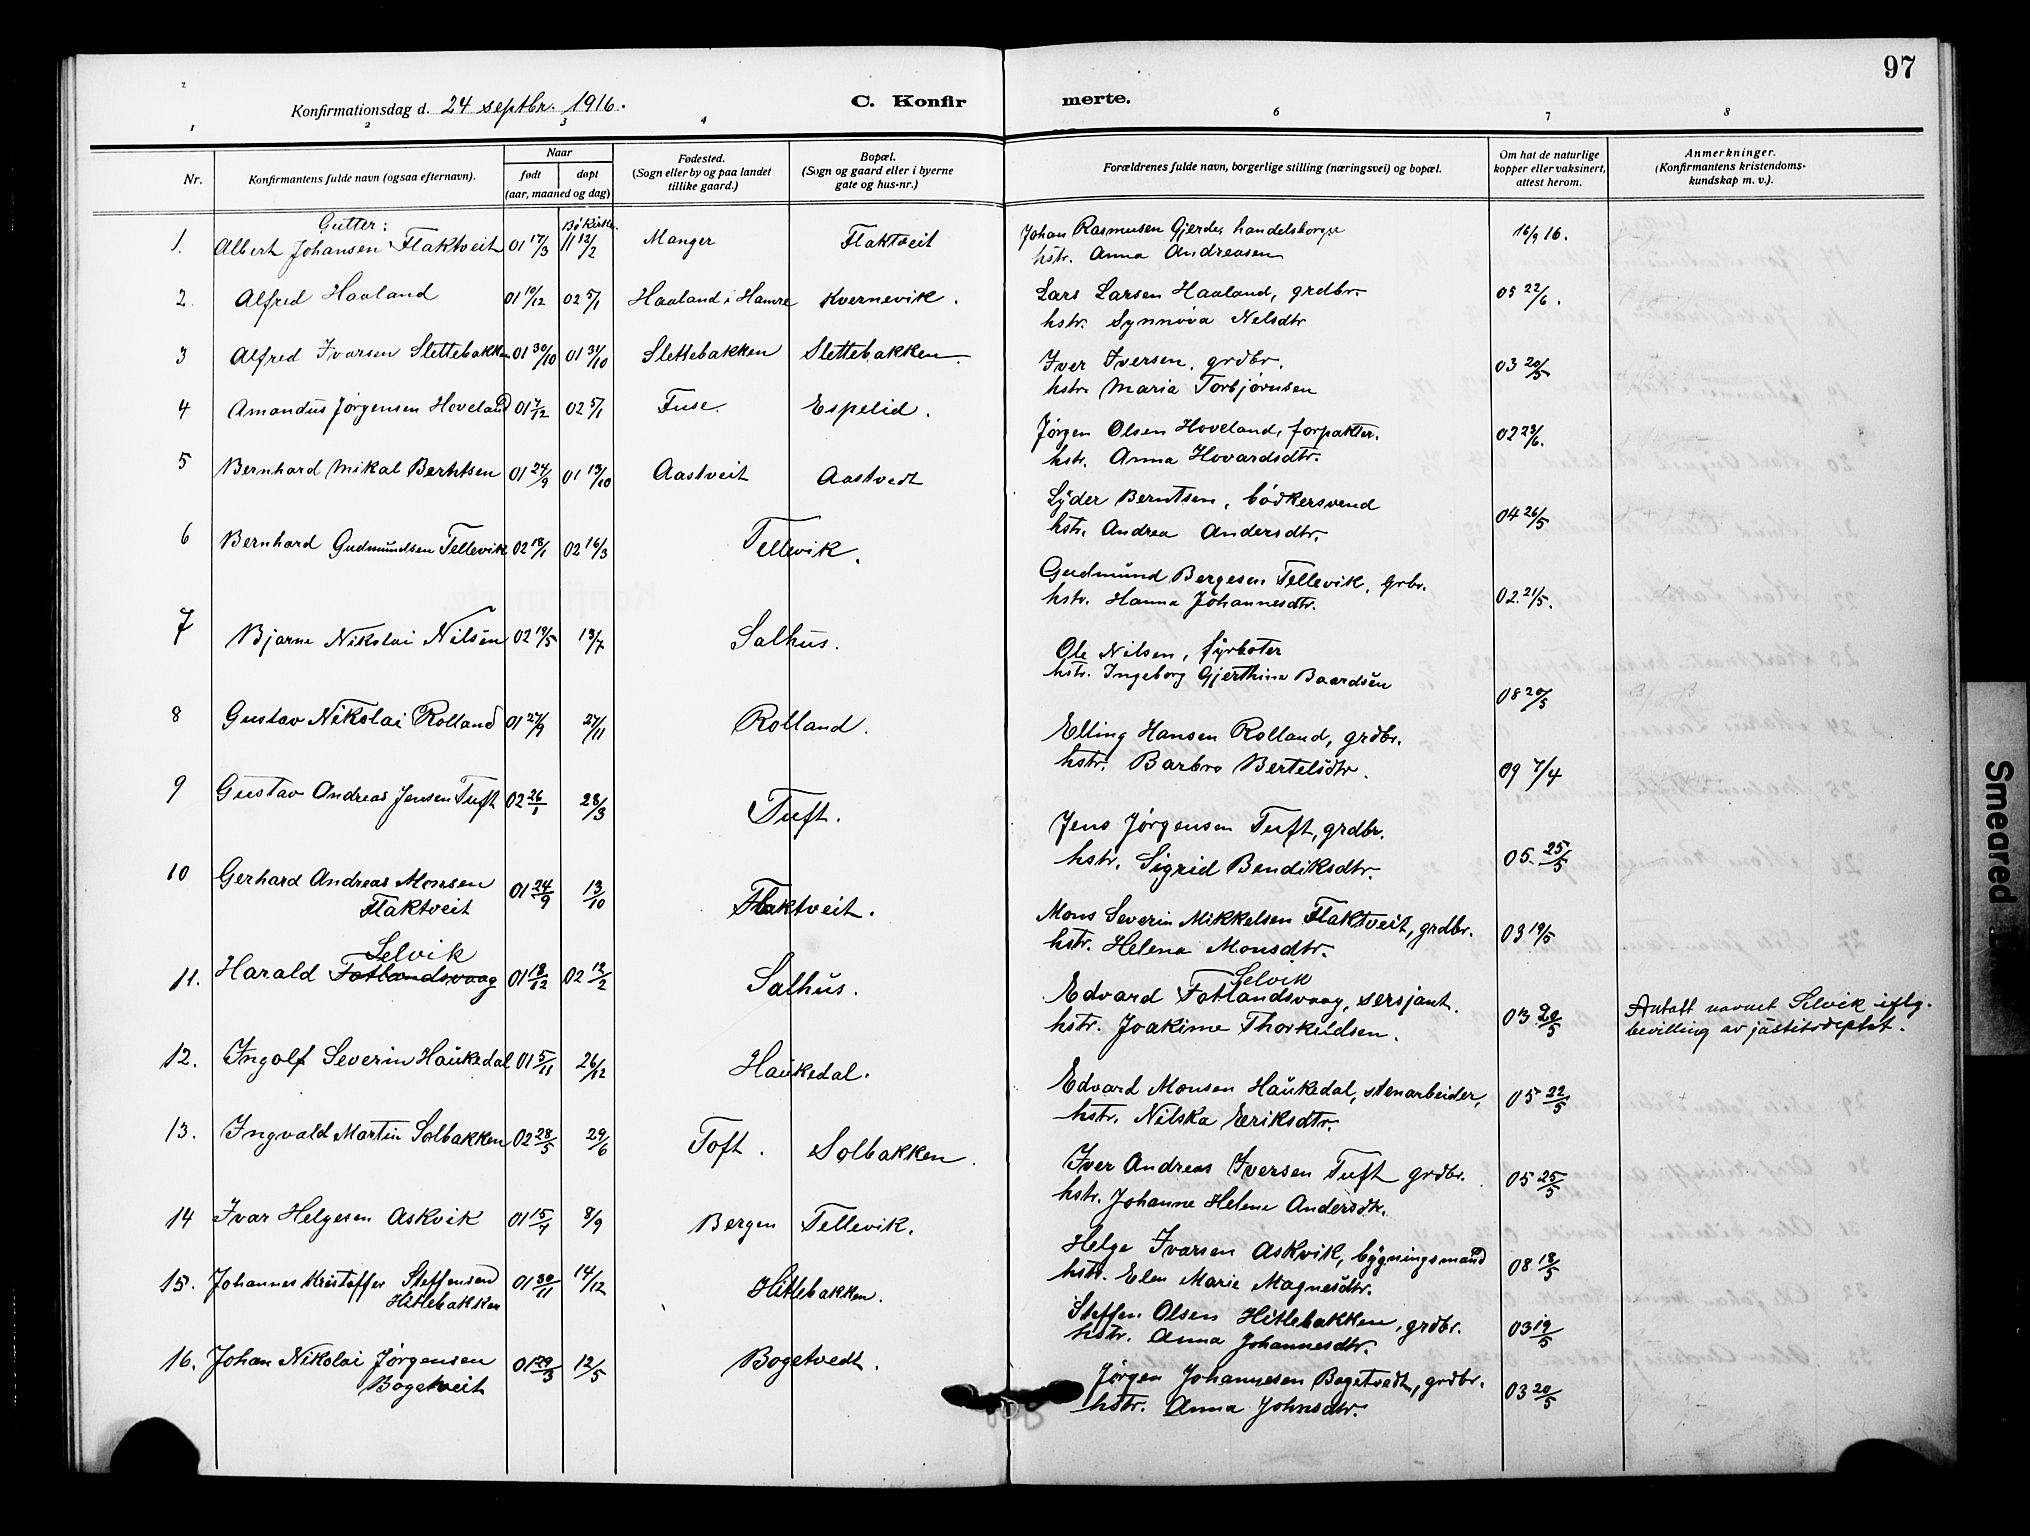 97
Konfirmationsdag d. 24 septbr. 1916.
C. Konfirmerte.
1 2 3 4 6 7 8
Nr. Konfirmantens fulde navn (ogsaa efternavn). Naar født døpt (aar, maaned og dag) Fødested. (Sogn eller by og paa landet tillike gaard.) Bopæl. (Sogn og gaard eller i byerne gate og hus-nr.) Forældrenes fulde navn, borgerlige stilling (næringsvei) og bopæl. Om hat de naturlige kopper eller vaksinert, attest herom. Anmerkninger. (Konfirmantens kristendomskundskap m. v.).
Gutter:
1. Albert Johansen Flaktveit 01 17/3 11 12/2 Manger Flaktveit Johan Rasmusen Gjerde, handelsborger 16/9 16.
hstr. Anna Andreasen
2. Alfred Haaland 01 10/12 02 5/1 Haaland i Hamre Kvernevik. Lars Larsen Haaland, grdbr. 05 22/6.
hstr. Synnöva Nelsdtr
3 Alfred Ivarsen Slettebakken 01 30/10 01 31/10 Slettebakken Slettebakken Iver Iversen, grdbr. 03 20/5
hstr. Maria Torbjørnsen
4 Amandus Jørgensen Hoveland 01 7/12 02 5/1 Fuse. Espelid. Jørgen Olsen Hoveland, forpakter. 02 23/6.
hstr. Anna Hovardsdtr.
5 Bernhard Mikal Berntsen 01 24/9 01 13/10 Aastveit Aastvedt Lyder Berntsen, bödkersvend 04 26/5
hstr. Andrea Andersdtr.
6 Bernhard Gudmundsen Tellevik 02 18/1 02 16/3 Tellevik. Gudmund Bergesen Tellevik, grbr. 02. 21/5.
hstr. Hanna Johannesdtr.
7 Bjarne Nikolai Nilsen 02 19/5 13/7 Salhus. Ole Nilsen, fyrbøter 08 20/5
hstr. Ingeborg Gjerthine Baardsen
8 Gustav Nikolai Rolland 01 27/9 27/11 Rolland. Elling Hansen Rolland, grdbr. 09 7/4
hstr. Barbro Bertelsdtr.
9 Gustav Andreas Jensen Tuft 02 26/1 28/3 Tuft. Jens Jørgensen Tuft, grdbr. 05. 25/5
hstr. Sigrid Bendiksdtr.
10 Gerhard Andreas Monsen 01 24/9 13/10 Flaktveit. Mons Severin Mikkelsen Flaktveit, grdbr. 03 19/5
Flaktveit hstr. Helena Monsdtr.
Selvik Selvik
11. Harald Fotlandsvaag 01 18/12 02 12/2 Salhus. Edvard Fotlandsvaag, sersjant. 03 20/5 Antatt navnet Selvik iflg.
hstr. Joakime Thorkildsen. bevilling av justitsdeptet.
12. Ingolf Severin Haukedal 01 5/11 26/12 Haukedal. Edvard Monsen Haukedal, stenarbeider, 05 22/5
hstr. Nilska Eriksdtr.
13. Ingvald Martin Solbakken 02 28/5 29/6 Toft. Solbakken. Iver Andreas Iversen Tuft grdbr. 05 25/5
hstr. Johanne Helene Andersdtr.
14 Ivar Helgesen Askvik 01 15/7 8/9 Bergen Tellevik. Helge Ivarsen Askvik, bygningsmand 08 18/5
hstr. Elen Marie Magnesdtr.
15. Johannes Kristoffer Steffensen 01 30/11 14/12 Hitlebakken. Steffen Olsen Hitlebakken, grdbr. 03 19/5
Hitlebakken hstr. Anna Johannesdtr.
16. Johan Nikolai Jørgensen 01 29/3 12/5 Bogetvedt. Jørgen Johannesen Bogetvedt, grdbr. 03 20/5
Bogetveit hstr. Anna Johnsdtr.
Smeared